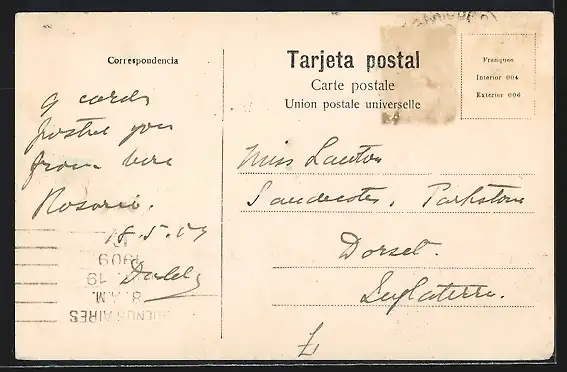 Correspondencia
Tarjeta postal
Carte postale
Union postale universelle
Franqueo
Interior 004
Exterior 006
9 cards
posted you
from here
Rosario.
18.5.09
Miss Lawton
Sandecotes, Parkstone
Dorset.
Inglaterra.
BUENOS AIRES
8 A.M.
19
1909